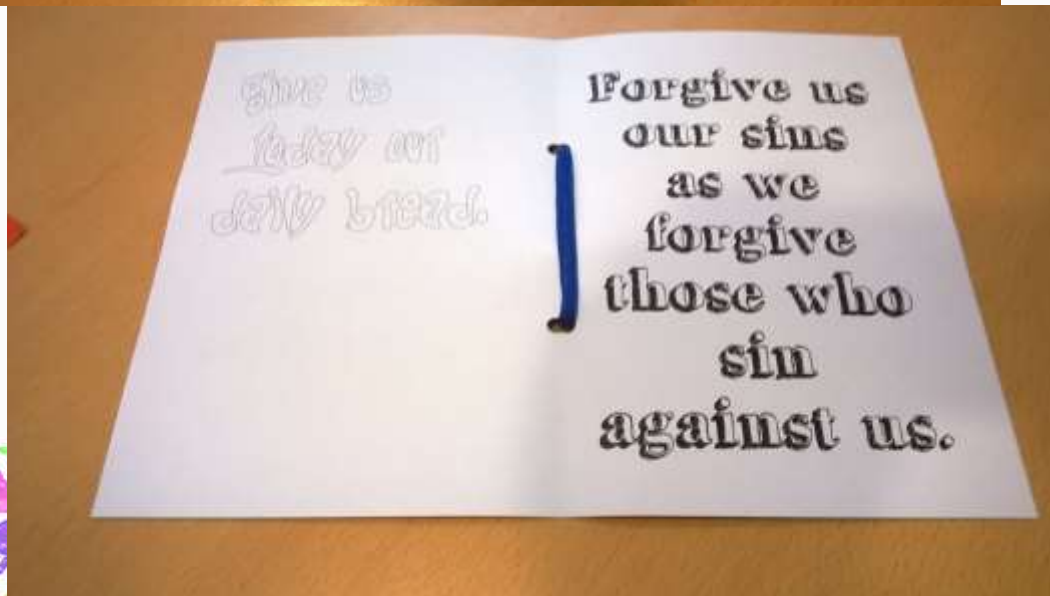 give us
today our
daily bread.
Forgive us
our sins
as we
forgive
those who
sin
against us.